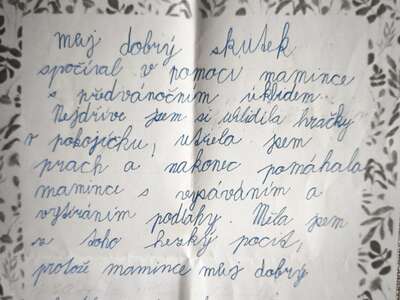 můj dobrý skutek
spočíval v pomoci mamince
s předvánočním úklidem.
Nejdříve jsem si uklidila hračky
v pokojíčku, utřela jsem
prach a nakonec pomáhala
mamince s vysáváním a
vytíráním podlahy. Měla jsem
z toho hezký pocit,
protože mamince můj dobrý